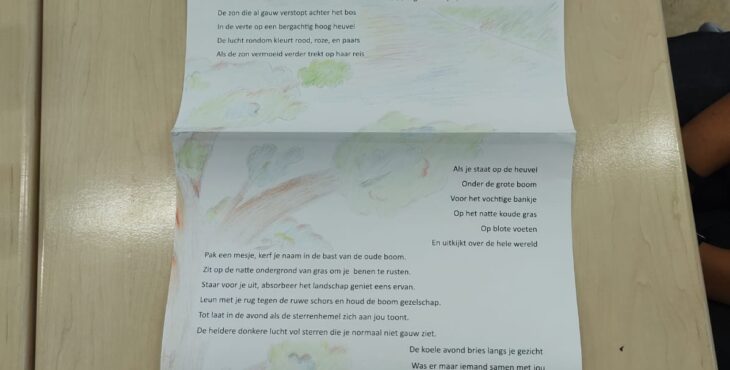 De zon die al gauw verstopt achter het bos
In de verte op een bergachtig hoog heuvel
De lucht rondom kleurt rood, roze, en paars
Als de zon vermoeid verder trekt op haar reis
Als je staat op de heuvel
Onder de grote boom
Voor het vochtige bankje
Op het natte koude gras
Op blote voeten
En uitkijkt over de hele wereld
Pak een mesje, kerf je naam in de bast van de oude boom.
Zit op de natte ondergrond van gras om je benen te rusten.
Staar voor je uit, absorbeer het landschap geniet eens ervan.
Leun met je rug tegen de ruwe schors en houd de boom gezelschap.
Tot laat in de avond als de sterrenhemel zich aan jou toont.
De heldere donkere lucht vol sterren die je normaal niet gauw ziet.
De koele avond bries langs je gezicht
Was er maar iemand samen met jou